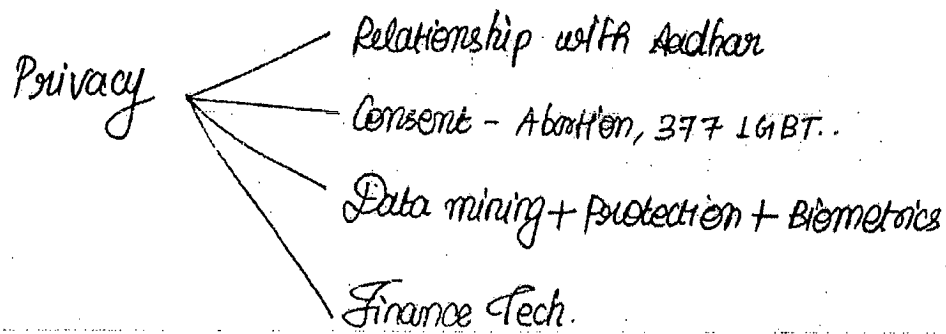 Privacy
Relationship with Aadhar
Consent - Abortion, 377 LGBT..
Data mining + Protection + Biometrics
Finance Tech.